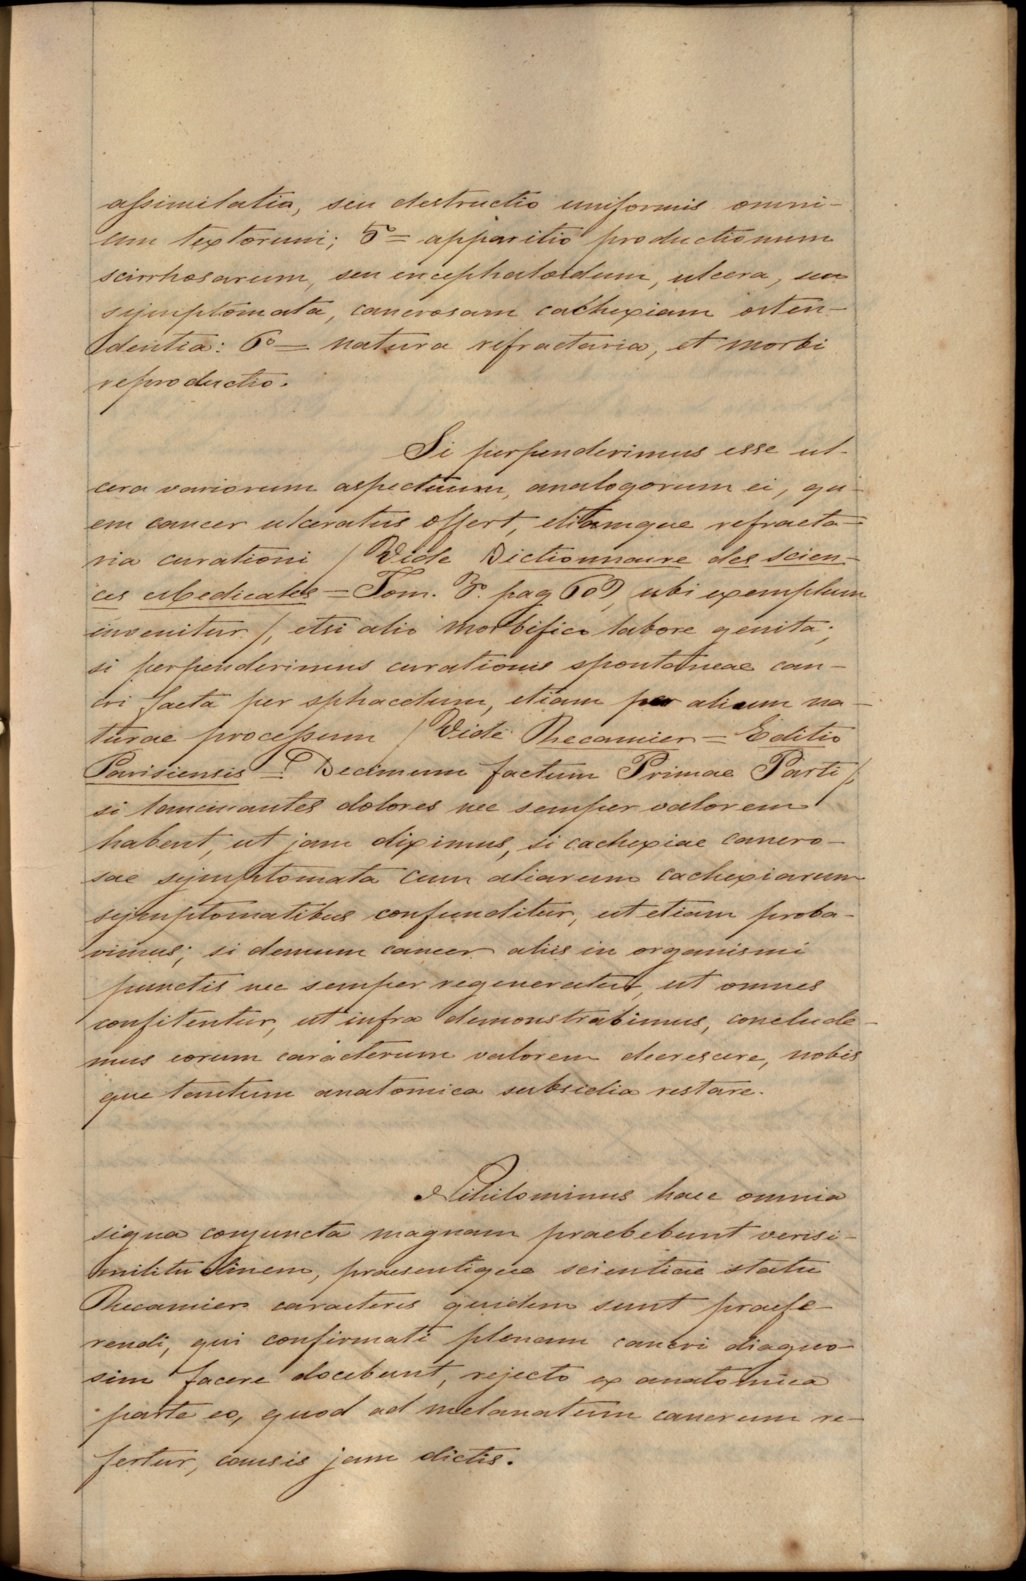 assimilatio, seu destructio uniformis omni-
um textorum; 5º = apparitio productionum
scirrhosarum, seu encephaloidum, ulcera, seu
symptomata, cancrosam cachexiam osten-
dentia: 6º = natura refractaria, et morbi
reproductio.
Si perpenderimus esse ul-
cera variorum aspectuum, analogorum ei, qu-
em cancer ulceratus offert, etiamque refracta-
ria curationi / Vide Dictionnaire des scien-
ces Medicales = Tom. 3º. pag 609, ubi exemplum
invenitur /, etsi alio morbifico labore genita;
si perpenderimus curationis spontaneae can-
cri facta per sphacelum, etiam per alium na-
turae processum / Vide Recamier = Editio
Parisiensis = Decimum factum Primae Parti /;
si lancinantes dolores nec semper valorem
habent, ut jam diximus, si cachexiae cancro-
sae symptomata cum aliarum cachexiarum
symptomatibus confunditur, ut etiam proba-
vimus; si demum cancer aliis in organismi
punctis nec semper regeneratur, ut omnes
confitentur, ut infra demonstrabimus, conclude-
mus eorum caracterum valorem decrescere, nobis
que tantum anatomica subsidia restare.
Nihilominus haec omnia
signa conjuncta magnam praebebunt verisi-
militudinem, praesentique scientiae statu
Recamier caracteris quidem sunt praefe-
rendi, qui confirmati plenam cancri diagno-
sim facere docebunt, rejecto ex anatomica
parte eo, quod ad melanatum cancrum re-
fertur, causis jam dictis.